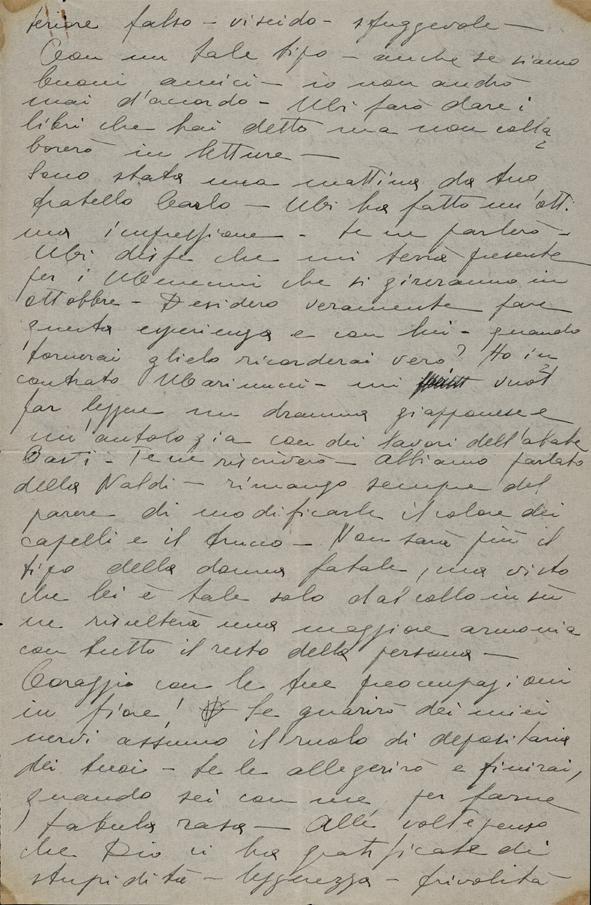 teriore falso - viscido - sfuggevole -
Con un tale tipo - anche se siamo
buoni amici - io non andrò
mai d'accordo - Mi farò dare i
libri che hai detto ma non colla
borerò in letture -
Sono stata una mattina da tuo
fratello Carlo - Mi ha fatto un'otti
ma impressione - te ne parlerò -
Mi disse che mi terrà presente
per i Misermi che si gireranno in
ottobre - Desidero veramente fare
questa esperienza e con lui - quando
tornerai glielo ricorderai vero? Ho in
contrato Marinucci - mi vuol
far leggere un dramma giapponese e
un'antologia con dei lavori dell'abate
Casti - Te ne riscriverò - Abbiamo parlato
della Naldi - rimango sempre del
parere di modificarle il colore dei
capelli e il trucco - Non sarà più il
tipo della donna fatale, ma visto
che lei è tale solo dal collo in su
ne risulterà una maggiore armonia
con tutto il resto della persona -
Coraggio con le tue preoccupazioni
in fiore! Se guarirò dei miei
nervi assumo il ruolo di depositaria
dei tuoi - te le allegerirò e finirai,
quando sei con me, per farne
tabula rasa - Alle volte penso
che Dio ci ha gratificate di
stupidità - leggerezza - frivolità